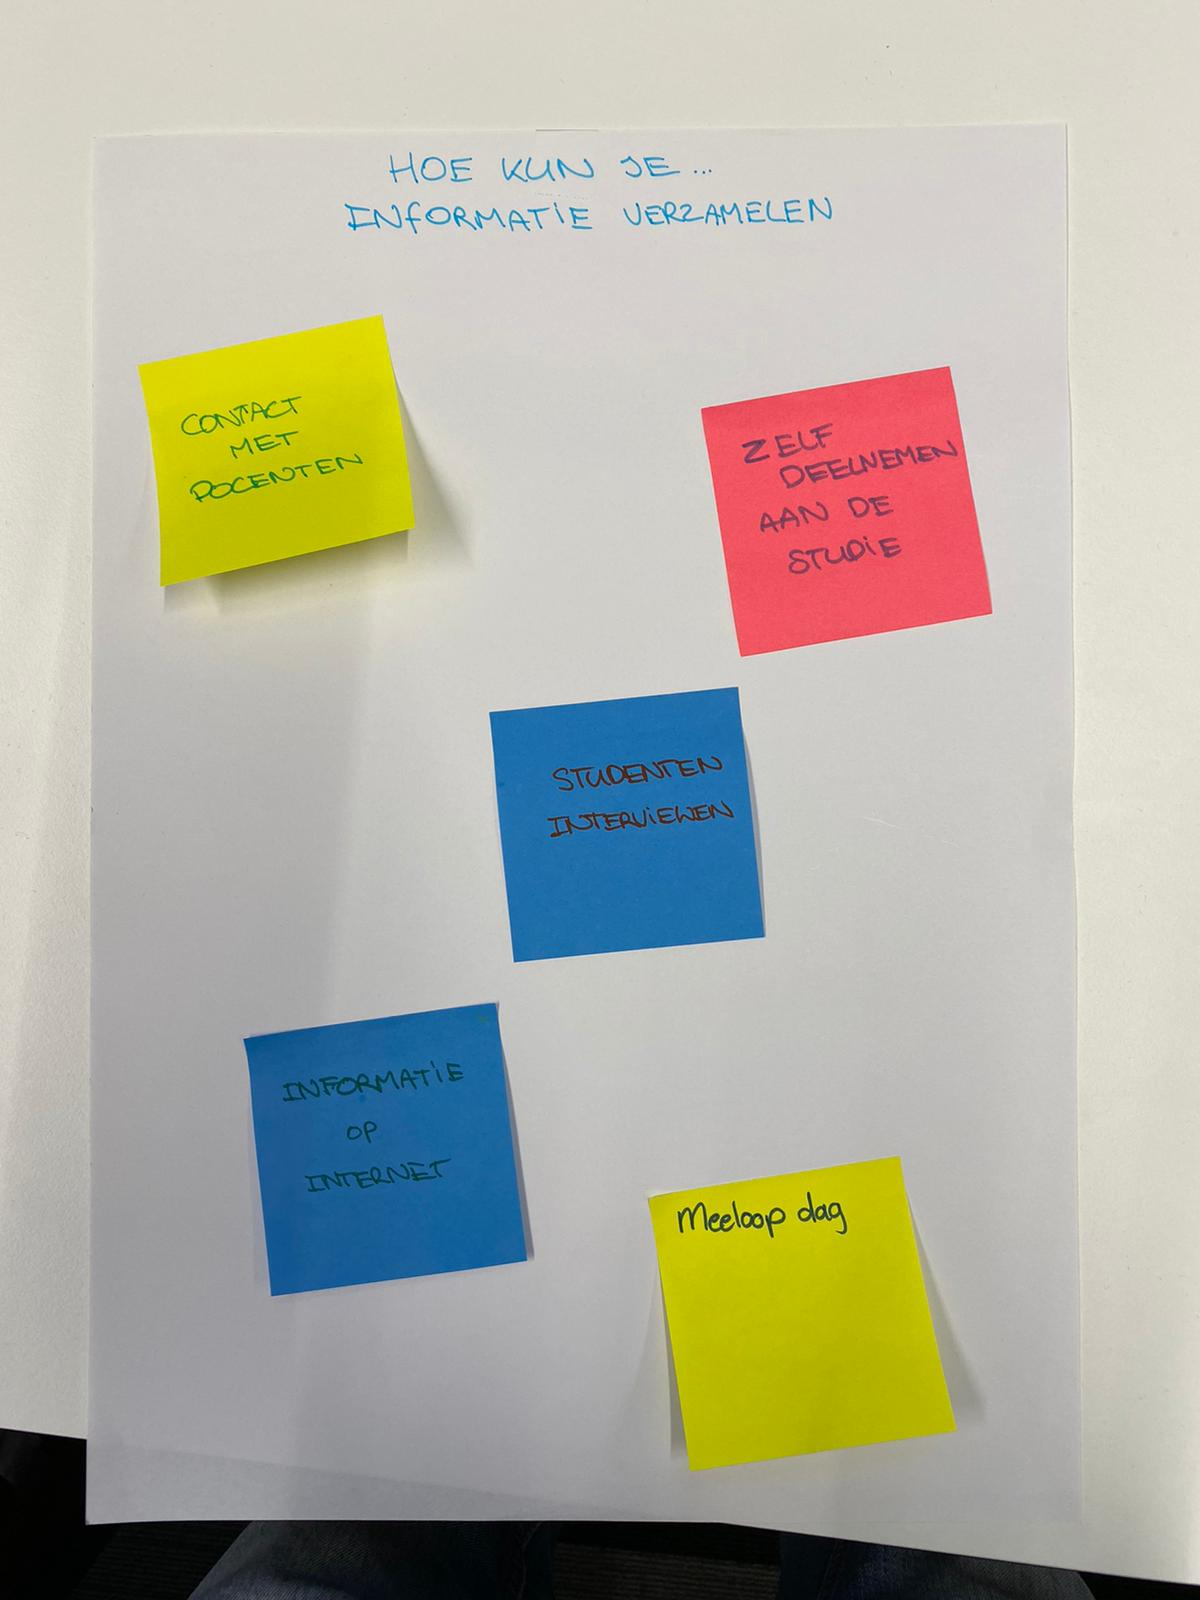 HOE KUN JE...
INFORMATIE VERZAMELEN
CONTACT
MET
DOCENTEN
ZELF
DEELNEMEN
AAN DE
STUDIE
STUDENTEN
INTERVIEWEN
INFORMATIE
OP
INTERNET
Meeloop dag